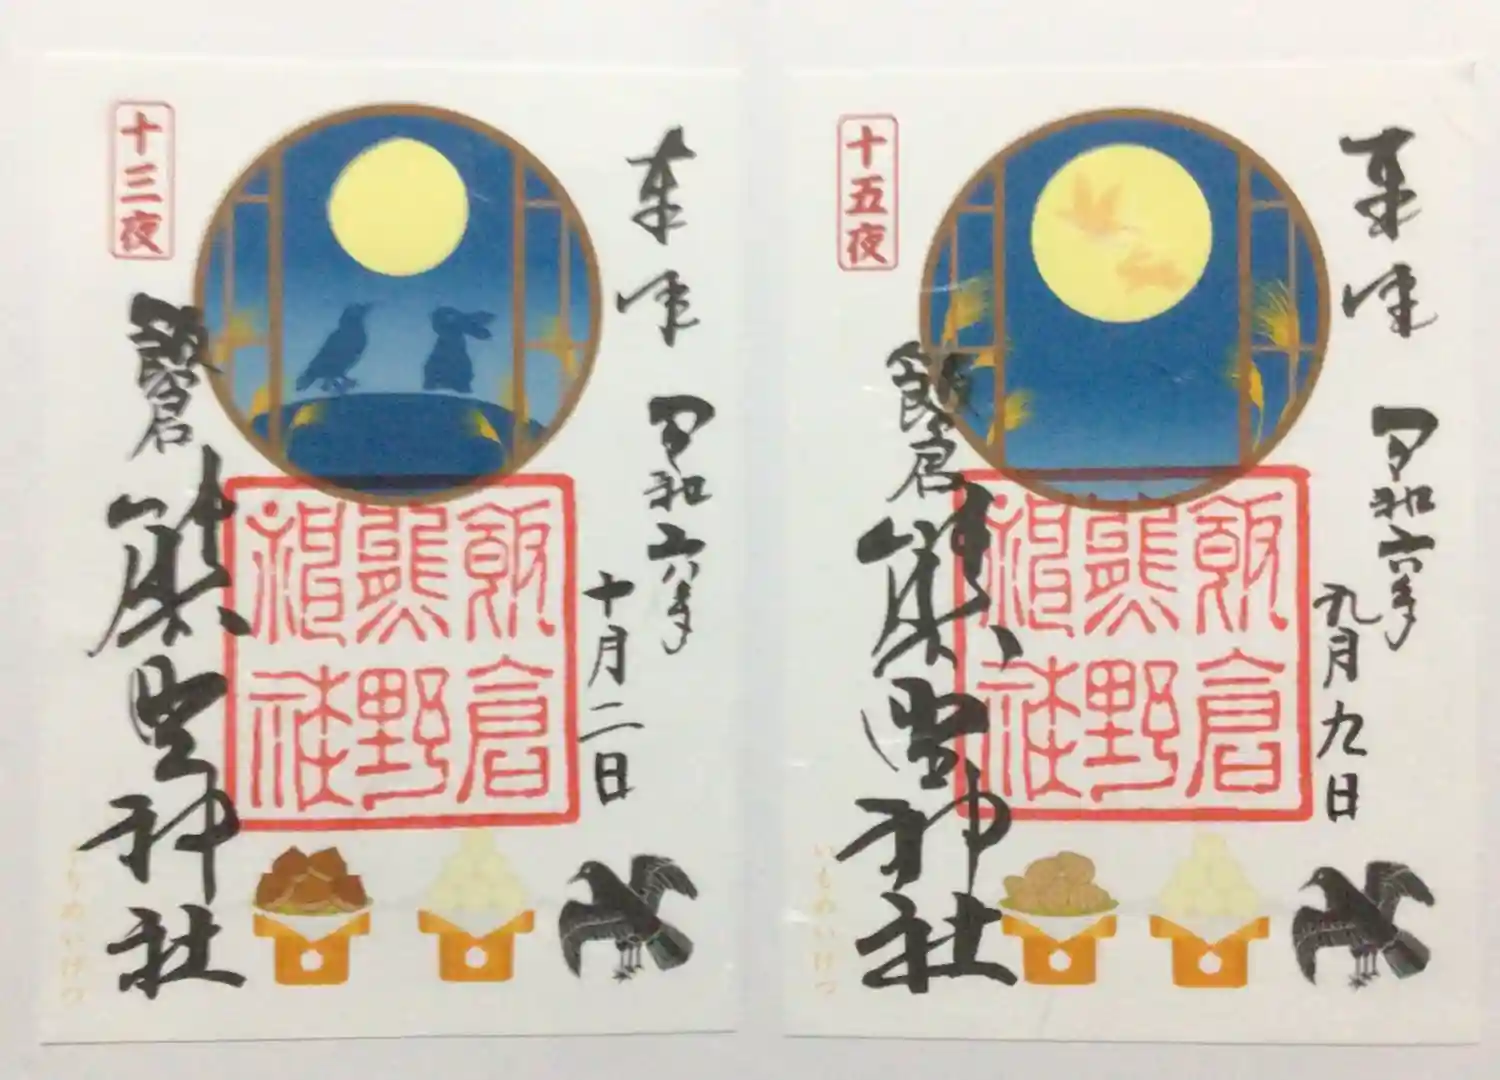 十三夜
奉拝
令和六年
十月二日
飯倉
熊野神社
飯倉
熊野
神社
十五夜
奉拝
令和六年
九月九日
飯倉
熊野神社
飯倉
熊野
神社
いもめいげつ